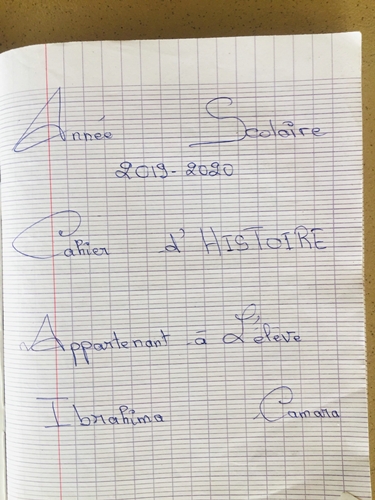 Année Scolaire
2019-2020
Cahier d'HISTOIRE
Appartenant à L'élève
Ibrahima Camara